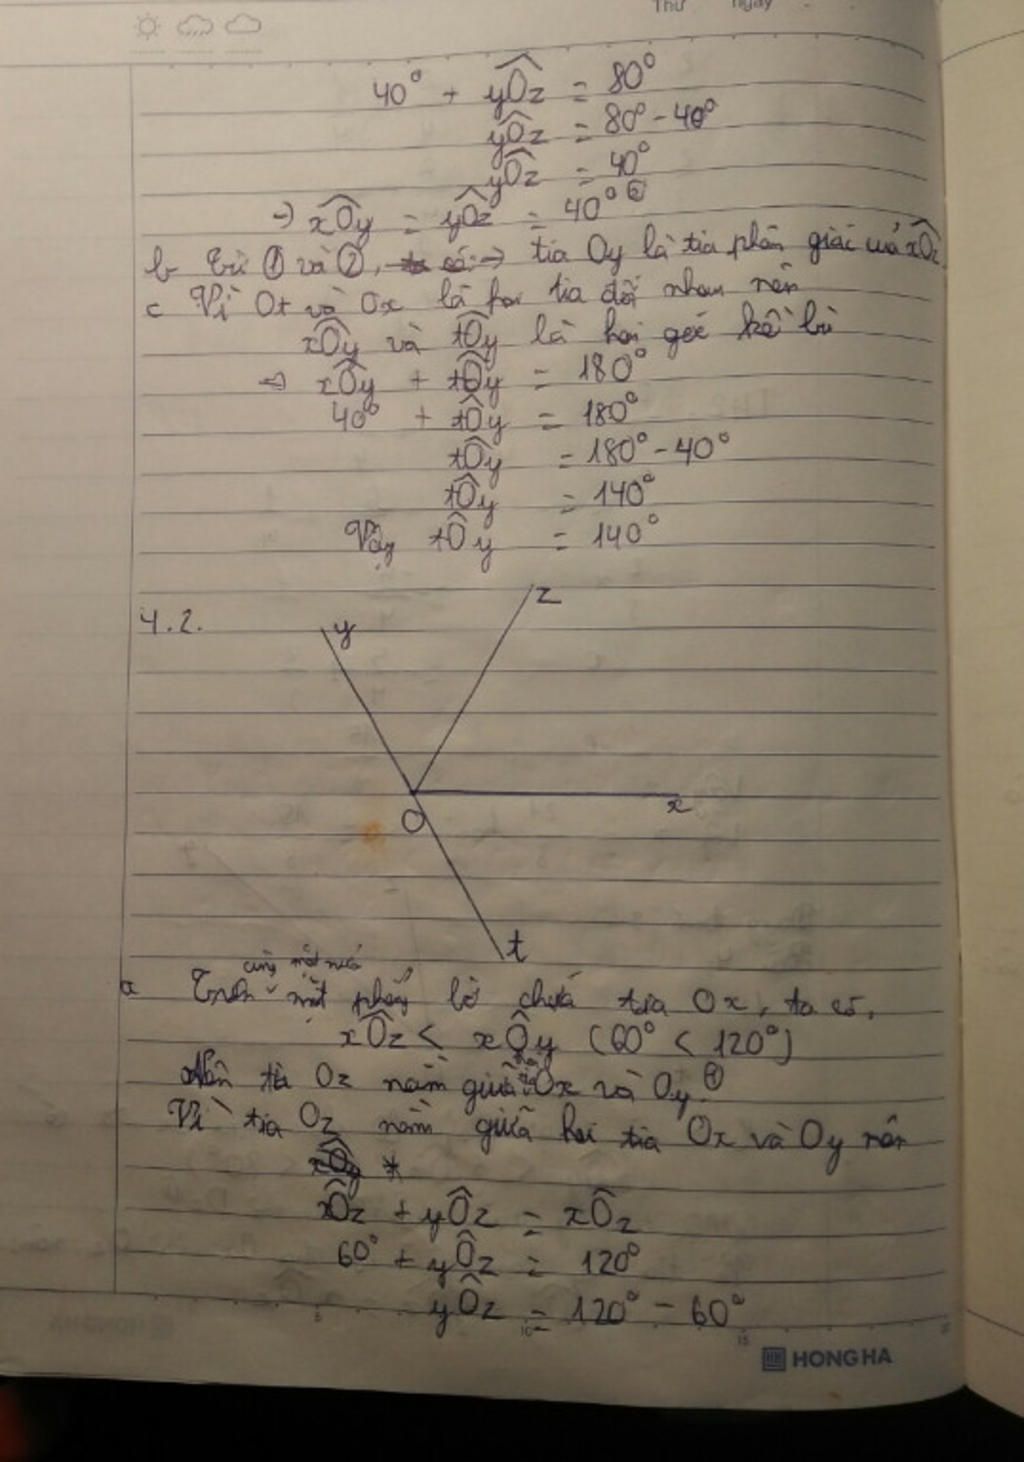 Thứ ngày
40° + yÔz = 80°
yÔz = 80° - 40°
yÔz = 40°
=> xÔy = yÔz = 40° ②
b Từ ① và ②, => tia Oy là tia phân giác của xÔz
c Vì Ot và Ox là hai tia đối nhau nên
xÔy và tÔy là hai góc kề bù
=> xÔy + tÔy = 180°
40° + tÔy = 180°
tÔy = 180° - 40°
tÔy = 140°
Vậy tÔy = 140°
z
4.2.
y
O
x
t
cùng một nửa
a Trên mặt phẳng bờ chứa tia Ox, ta có,
xÔz < xÔy (60° < 120°)
Nên tia Oz nằm giữa Ox và Oy ①
Vì tia Oz nằm giữa hai tia Ox và Oy nên
xÔz + yÔz = xÔz
60° + yÔz = 120°
yÔz = 120° - 60°
HONG HA